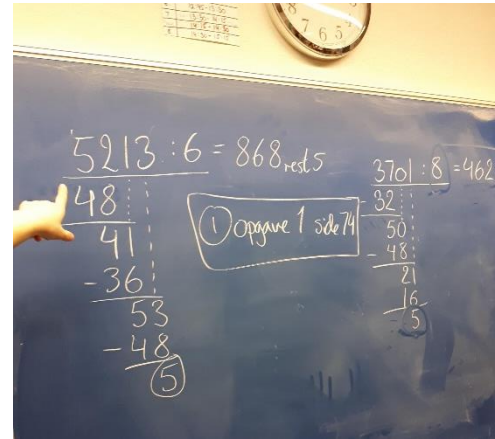 5213 : 6 = 868 rest 5
48
41
-36
53
-48
5
① Opgave 1 side 74
3701 : 8 = 462
-32
50
-48
21
16
5
8
7 6 5